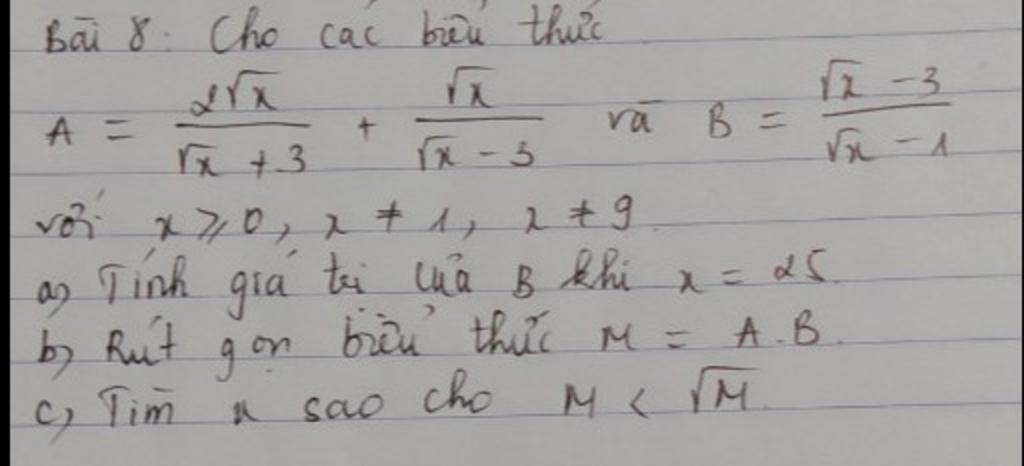 Bài 8: Cho các biểu thức
A = 2√x / (√x + 3) + √x / (√x - 3) và B = (√x - 3) / (√x - 1)
với x ⩾ 0, x ≠ 1, x ≠ 9.
a) Tính giá trị của B khi x = 25.
b) Rút gọn biểu thức M = A.B.
c) Tìm x sao cho M < √M.